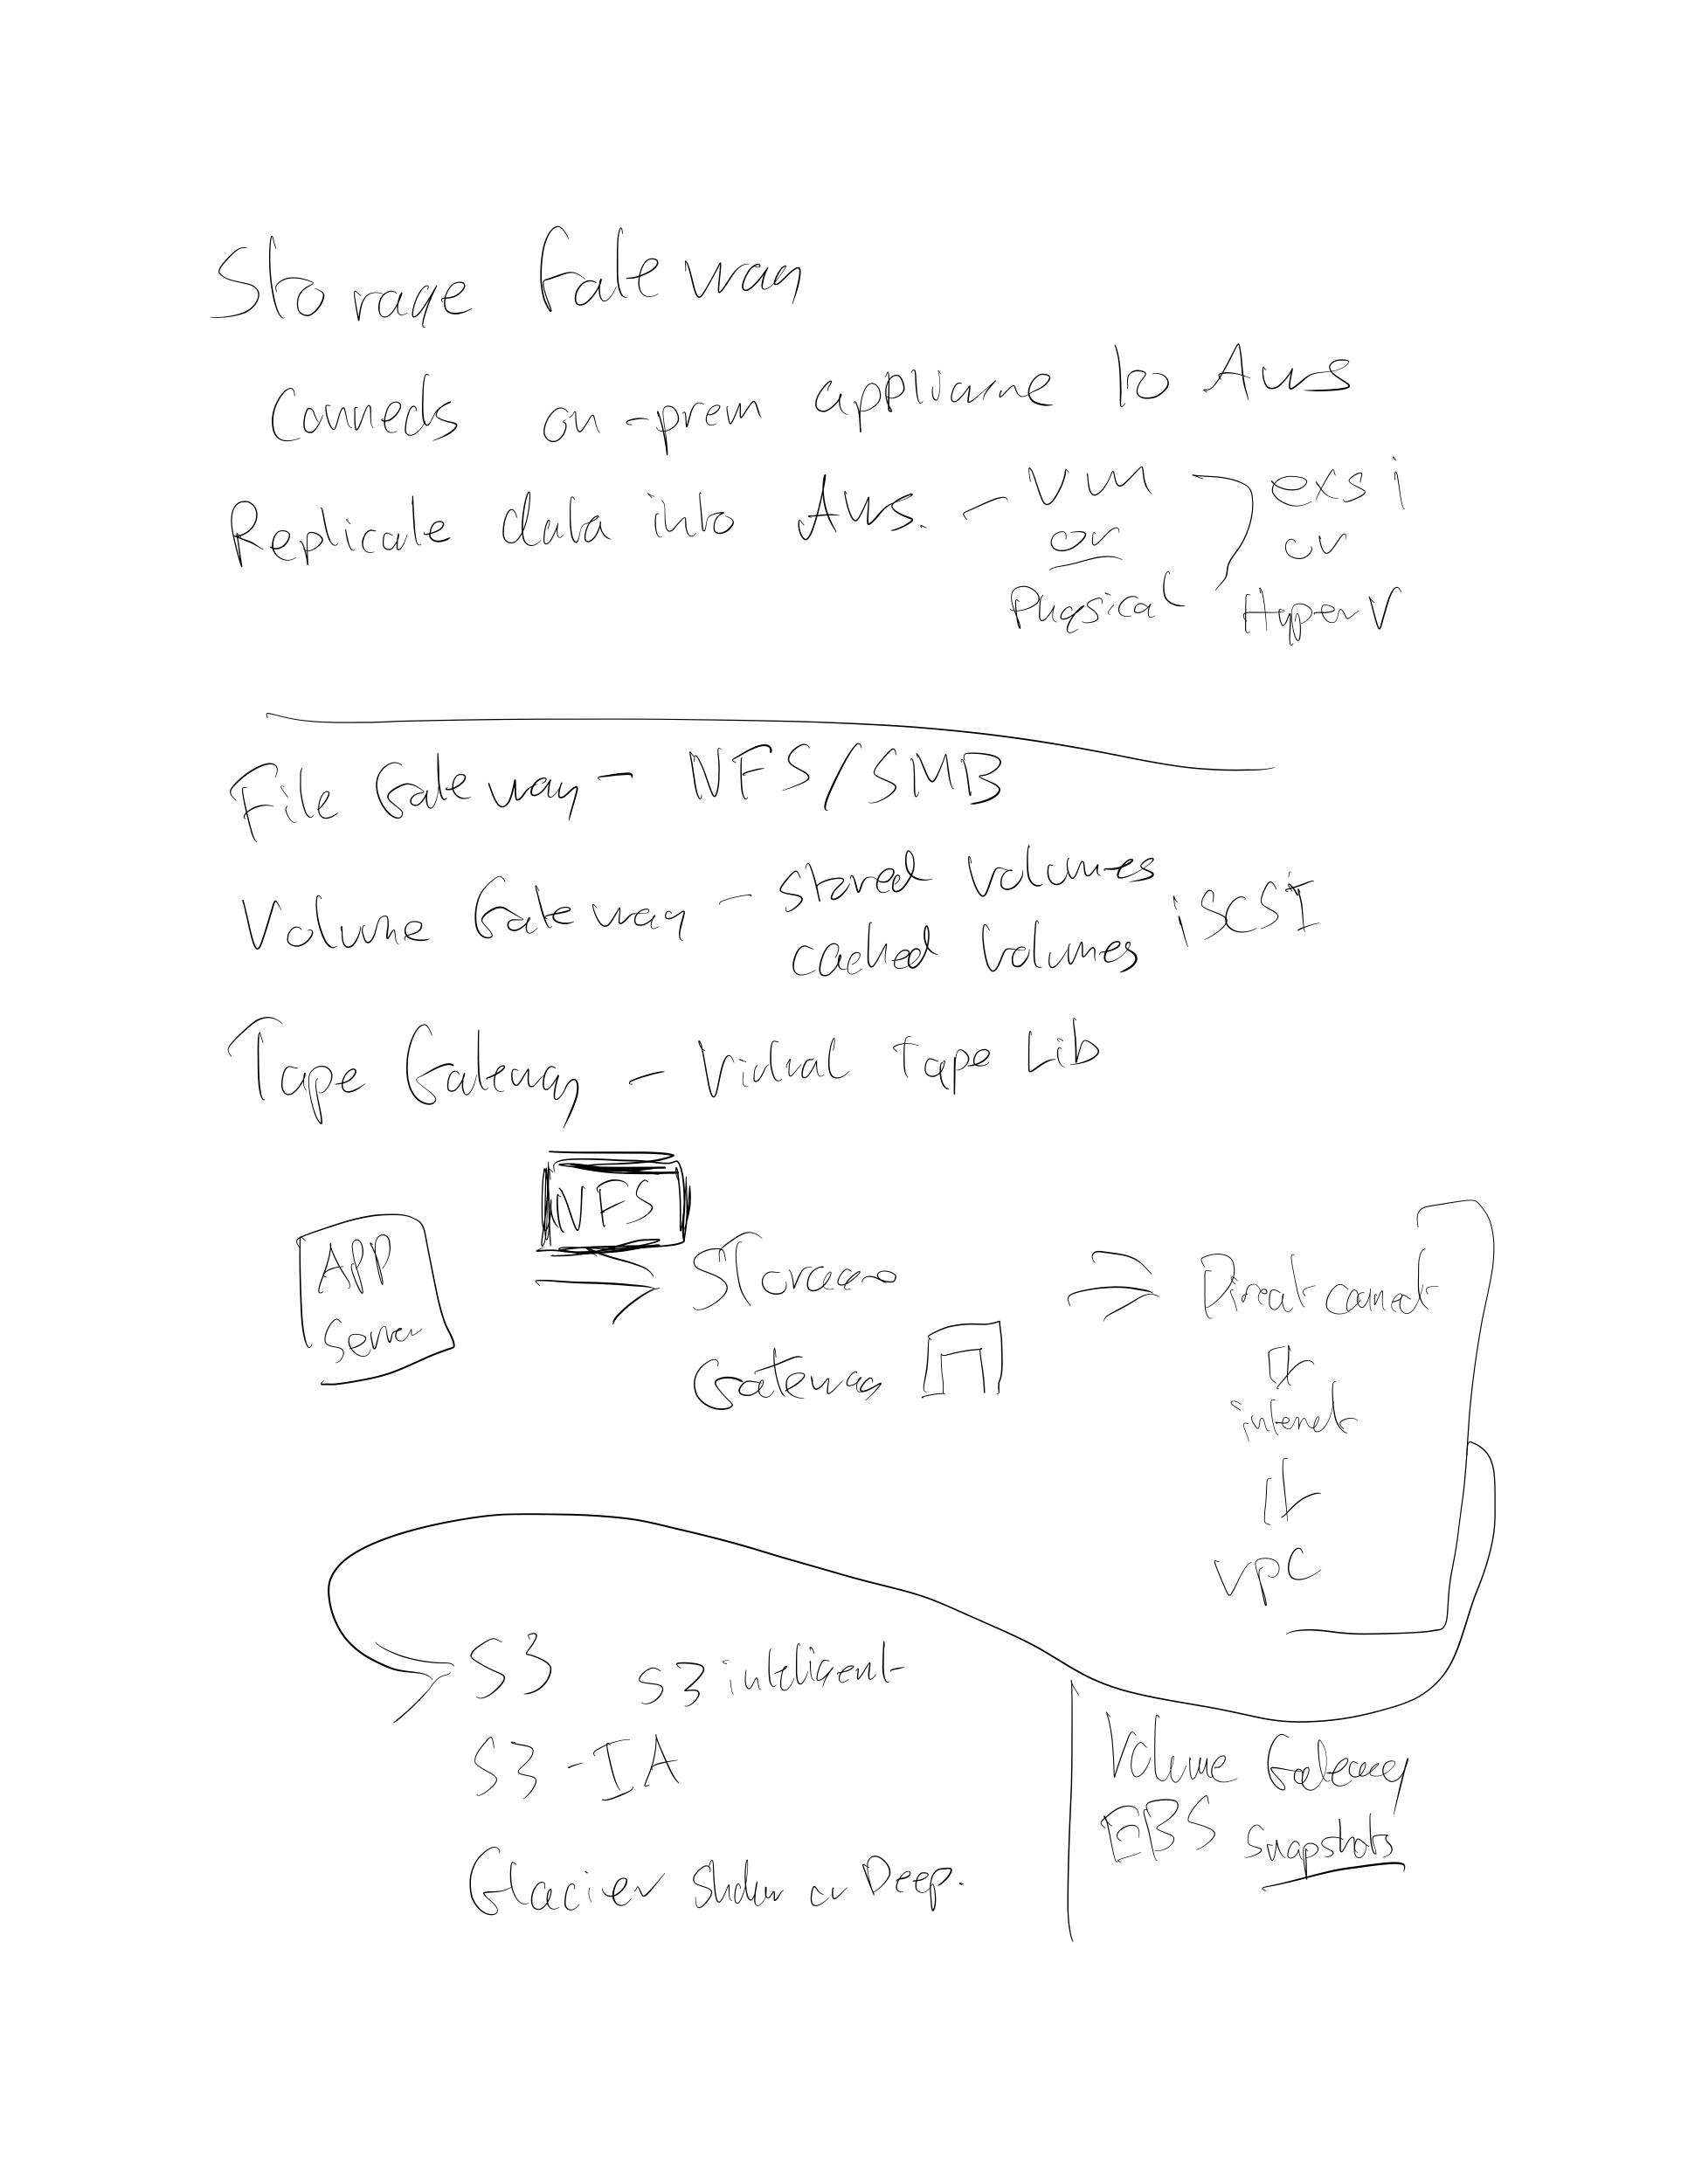 Storage Gateway
Connects on-prem appliance to AWS
Replicate data into AWS. - VM or Physical exsi or Hyper V
File Gateway - NFS/SMB
Volume Gateway - stored volumes
cached volumes iSCSI
Tape Gateway - Virtual Tape Lib
NFS
APP
Server
Storage
Gateway
Direct connect
internet
VPC
S3 S3 intelligent
S3-IA
Glacier or Deep.
Volume Gateway
EBS Snapshots